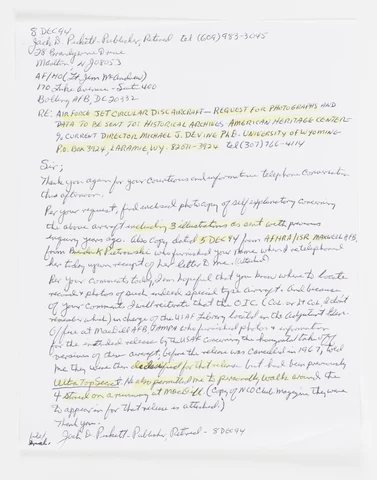 8 DEC 94
Jack D. Pickett - Publisher, Retired tel (609) 983-3045
28 Brandywine Drive
Marlton, NJ 08053
AF/HO (Lt. Jim McAndrew)
170 Luke Avenue - Suite 400
Bolling AFB, DC 20332
RE: AIR FORCE JET CIRCULAR DISC AIRCRAFT - REQUEST FOR PHOTOGRAPHS AND
DATA TO BE SENT TO: HISTORICAL ARCHIVES - AMERICAN HERITAGE CENTER -
% CURRENT DIRECTOR MICHAEL J. DEVINE PhE. UNIVERSITY OF WYOMING
P.O. BOX 3924, LARAMIE, WY. 82071-3924 tel (307) 766-4114
Sir;
Thank you again for your courteous and informative telephone conversation
this afternoon.
Per your request, find enclosed photo copy of self explanatory concerning
the above aircraft including 3 illustrations as sent with previous
inquiry years ago. Also copy dated 5 DEC 94 from AFHRA/ISR MAXWELL AFB,
from Pietrowski who furnished your phone when I telephoned
her today upon receipt of her letter to me (attached)
Per your comments today, I am hopeful that you know where to locate
records & photos of such special type aircraft. And because
of your comment I will reiterate that the O.I.C. (Col. or Lt Col. I don't
remember which) in charge of the USAF Library located in the Adjutant
Office at MacDill AFB, TAMPA who furnished photos & information
for the extended releases by the USAF concerning the horizontal take off
versions of these aircraft, before the release was canceled in 1967, told
me they were then declassified for that release but had been previously
Ultra Top Secret. He also permitted me to personally walk around the
4 stored on a runway at MacDill (copy of NCO Club Magazine they were
to appear in for that release is attached)
Thank you.
Jack D. Pickett - Publisher, Retired - 8 DEC 94